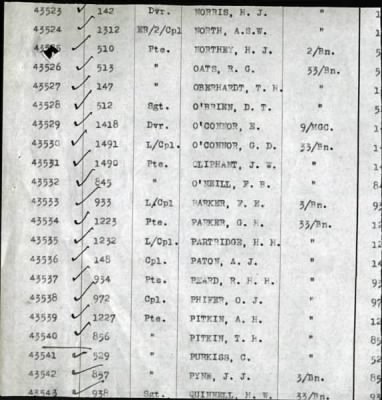 43523 142 Dvr. NORRIS, H. J. "
43524 1312 ER/2/Cpl NORTH, A.S.W. "
510 Pte. NORTHEY, H. J. 2/Bn.
43526 513 " OATS, R. G. 33/Bn.
43527 147 " OBERHARDT, T. H. "
43528 512 Sgt. O'BRIEN, D. T. "
43529 1418 Dvr. O'CONNOR, E. 9/MGC.
43530 1491 L/Cpl. O'CONNOR, G. D. 33/Bn.
43531 1490 Pte. OLIPHANT, J. W. "
43532 845 " O'NEILL, F. B. "
43533 933 L/Cpl PARKER, F. E. 3/Bn.
43534 1223 Pte. PARKER, G. H. 33/Bn.
43535 1232 L/Cpl. PARTRIDGE, H. H. "
43536 148 Cpl. PATON, A. J. "
43537 934 Pte. PEARD, R. H. H. "
43538 972 Cpl. PHIFER, O. J. "
43539 1227 Pte. PITKIN, A. H. "
43540 856 " PITKIN, T. H. "
43541 529 " PURKISS, C. "
43542 857 " PYNE, J. J. 3/Bn.
43543 938 Sgt. QUINNELL, H. W. 33/Bn.